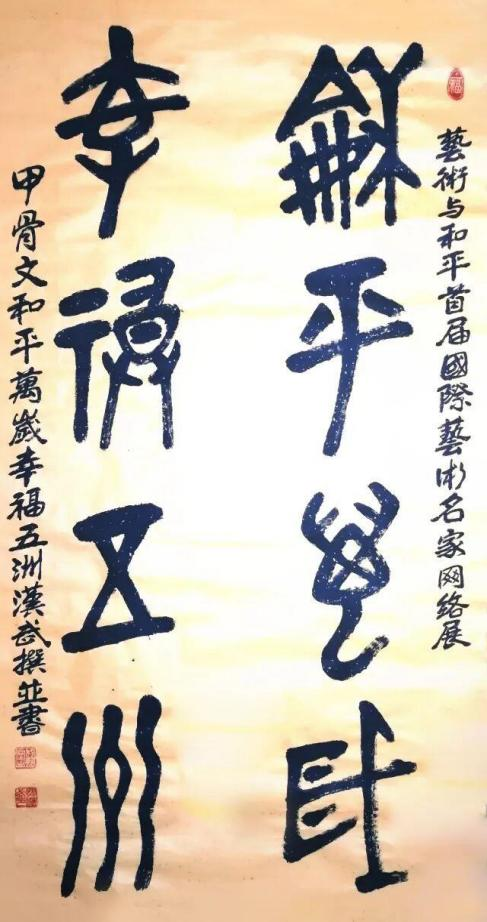 藝術与和平首届國際藝術名家网络展
龢平萬歲
幸福五洲
甲骨文和平萬歲幸福五洲漢武撰並書